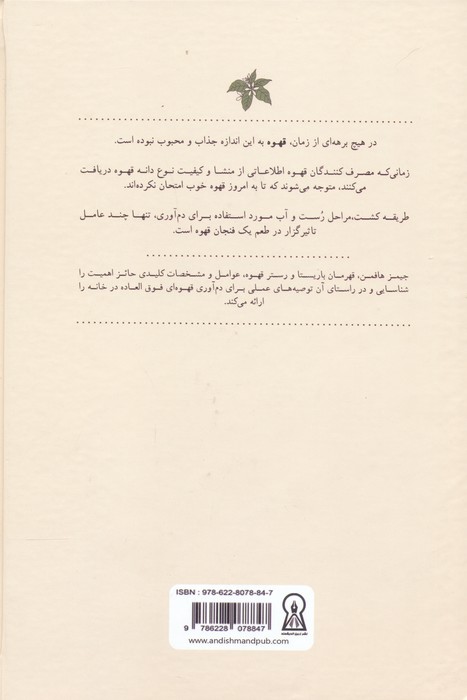 در هیچ برهه‌ای از زمان، قهوه به این اندازه جذاب و محبوب نبوده است.
زمانی‌که مصرف کنندگان قهوه اطلاعاتی از منشا و کیفیت نوع دانه قهوه دریافت
می‌کنند، متوجه می‌شوند که تا به امروز قهوه خوب امتحان نکرده‌اند.
طریقه کشت،مراحل رُست و آب مورد استفاده برای دم‌آوری، تنها چند عامل
تاثیرگزار در طعم یک فنجان قهوه است.
جیمز هافمن، قهرمان باریستا و رستر قهوه، عوامل و مشخصات کلیدی حائز اهمیت را
شناسایی و در راستای آن توصیه‌های عملی برای دم‌آوری قهوه‌ای فوق العاده در خانه را
ارائه می‌کند.
ISBN : 978-622-8078-84-7
9 786228 078847
www.andishmandpub.com